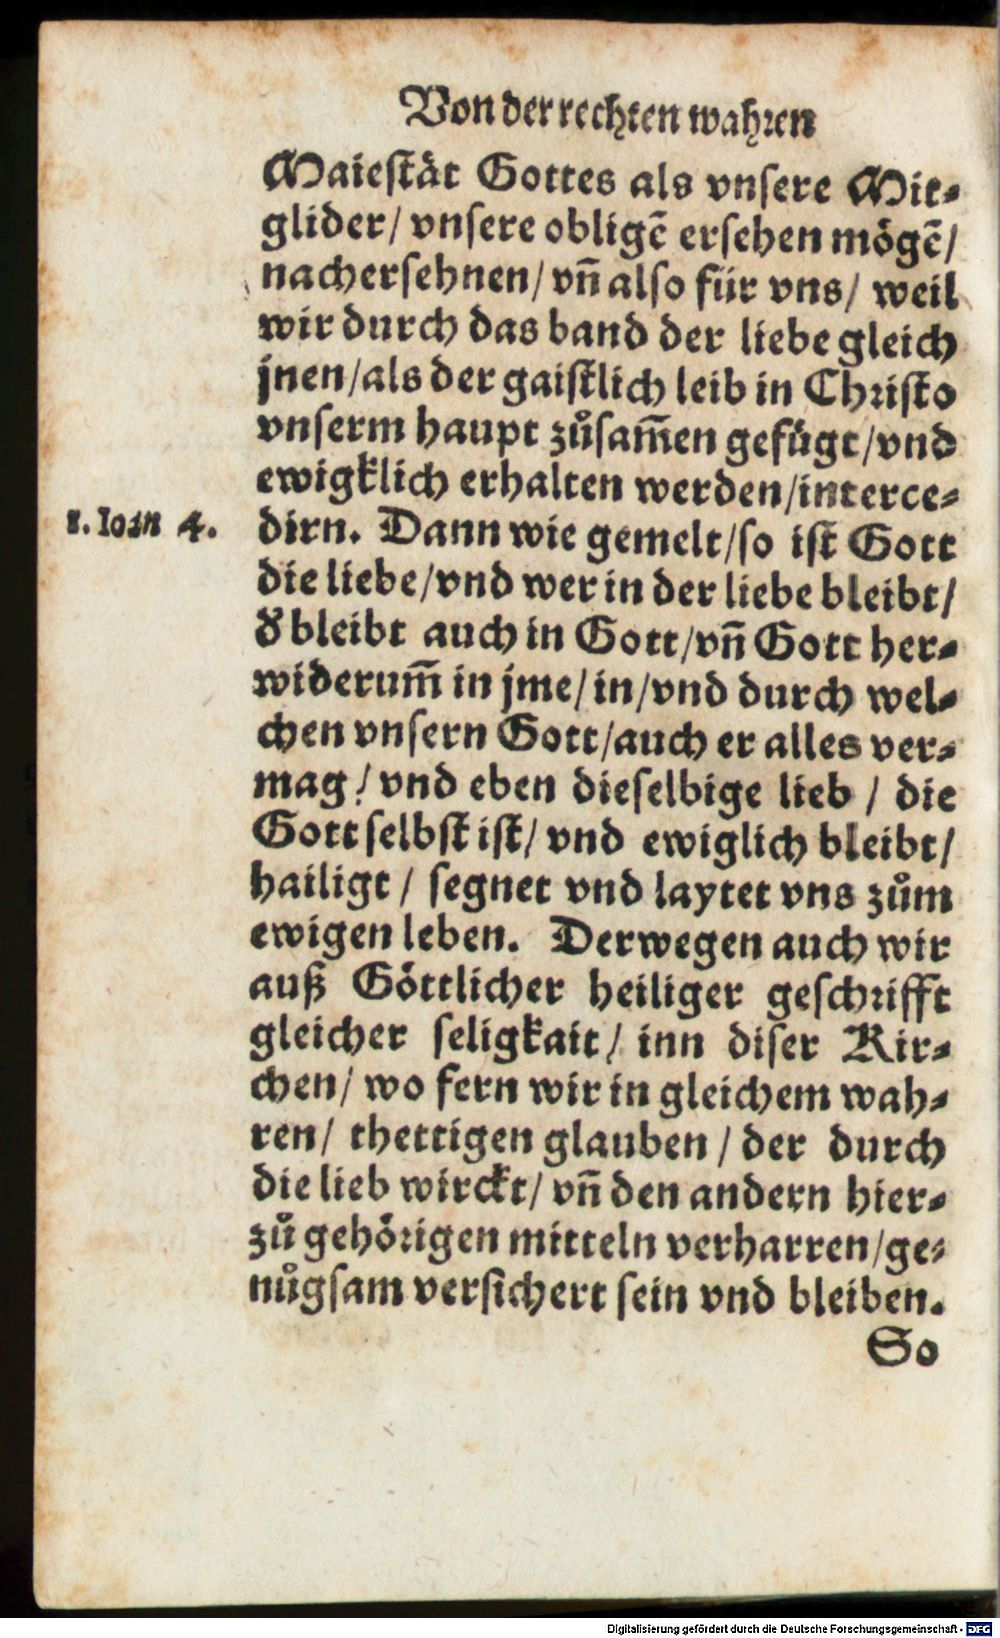 Von der rechten wahren
Maiestät Gottes als vnsere Mit-
glider/ vnsere obligē ersehen mögē/
nachersehnen/ vn̄ also für vns/ weil
wir durch das band der liebe gleich
jnen/als der gaistlich leib in Christo
vnserm haupt zůsam̄en gefügt/vnd
ewigklich erhalten werden/interce-
1. Ioan 4. dirn. Dann wie gemelt/so ist Gott
die liebe/vnd wer in der liebe bleibt/
d̕ bleibt auch in Gott/vn̄ Gott her-
widerum̄ in jme/in/vnd durch wel-
chen vnsern Gott/auch er alles ver-
mag/ vnd eben dieselbige lieb / die
Gott selbst ist/ vnd ewiglich bleibt/
hailigt / segnet vnd laytet vns zům
ewigen leben. Derwegen auch wir
auß Göttlicher heiliger geschrifft
gleicher seligkait/ inn diser Kir-
chen/ wo fern wir in gleichem wah-
ren/ thettigen glauben / der durch
die lieb wirckt/ vn̄ den andern hier-
zů gehörigen mitteln verharren/ge-
nůgsam versichert sein vnd bleiben.
So
Digitalisierung gefördert durch die Deutsche Forschungsgemeinschaft - DFG